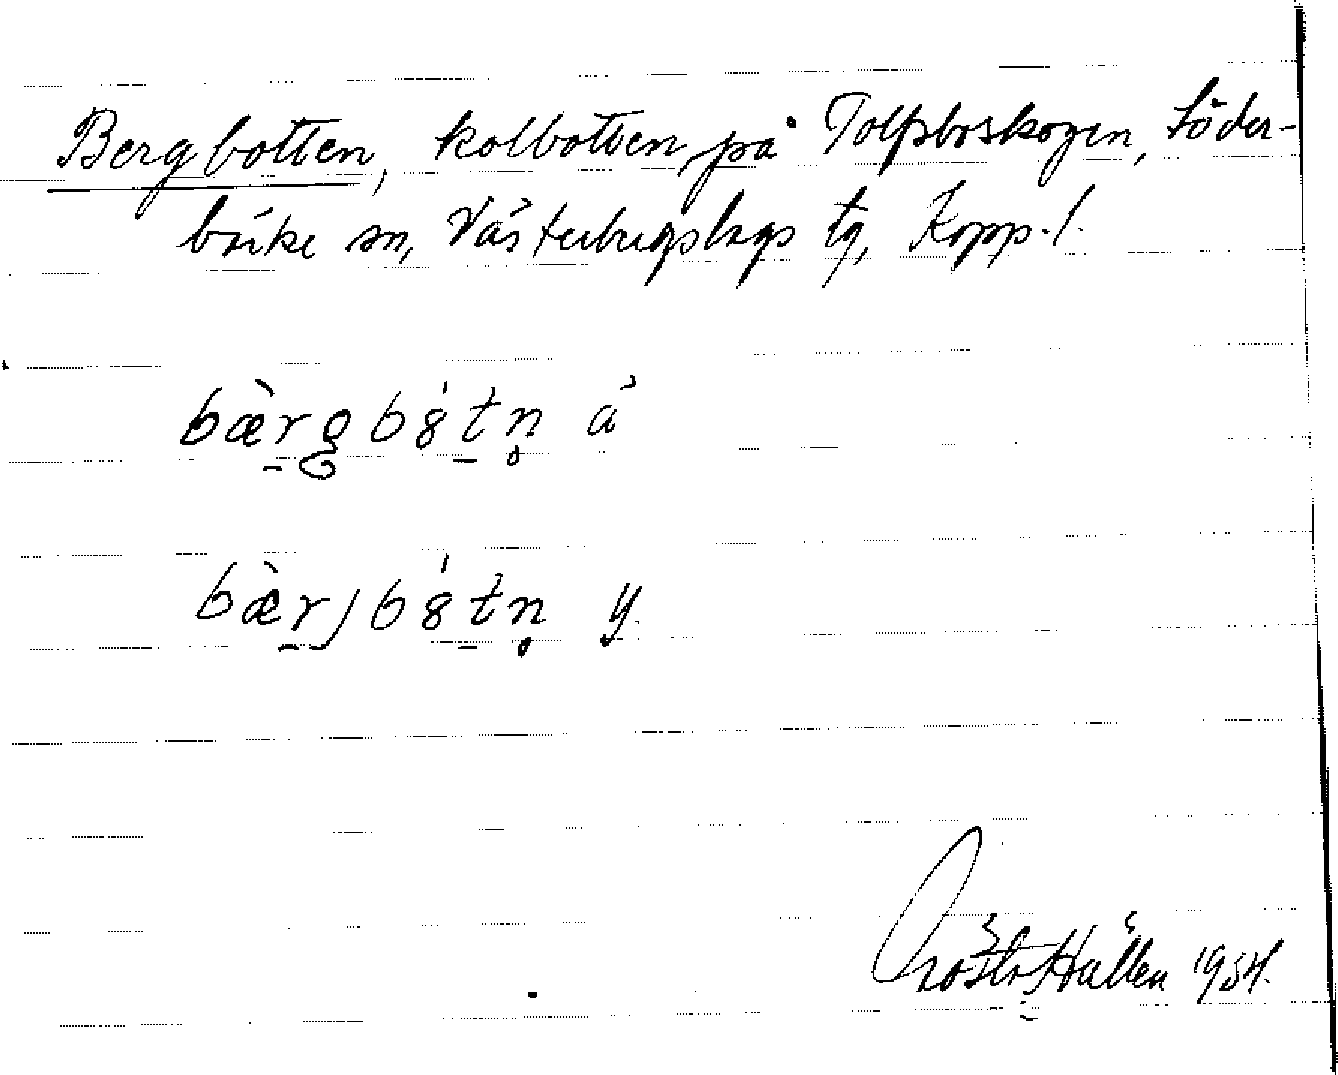 Bergbotten, kolbotten på Tolfsboskogen, Söder-
bärke sn, Västerbergslags tg, Kopp. l.
bæ̀rgbótn̥ ä
bæ̀rjbótn̥ y.
Hållén 1954.